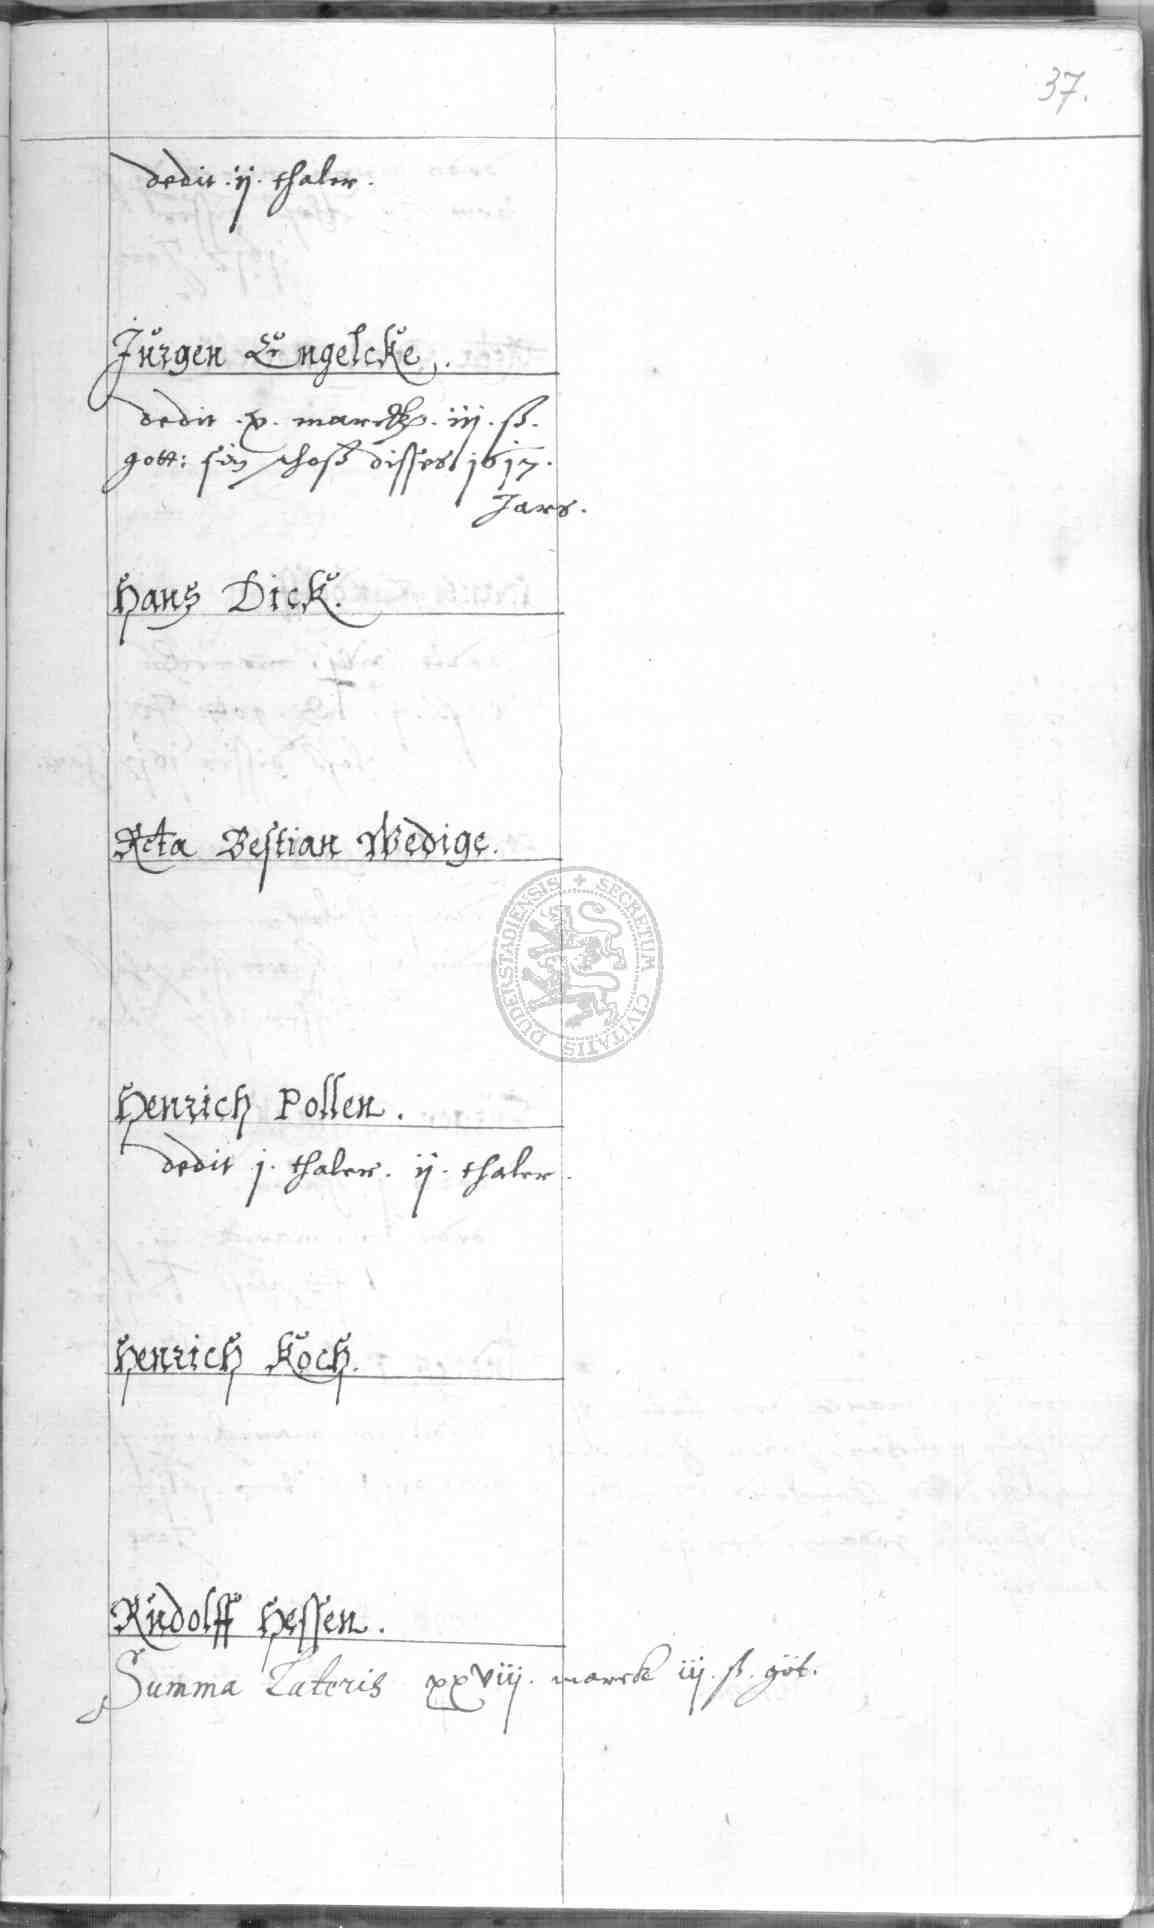 37.
dedit .ij. thaler.
Jürgen Engelcke.
dedit .x. marck. iij. ß.
gott: sin schoß disses 1617.
Jars.
Hans Dick.
Relicta Bestian Wedige.
Henrich Pollen.
dedit j. thaler. ij. thaler.
Henrich Koch.
Rudolff Hessen.
Summa Lateris xxviij. marck iij. ß. göt.
SECRETUM CIVITATIS DUDERSTADIENSIS